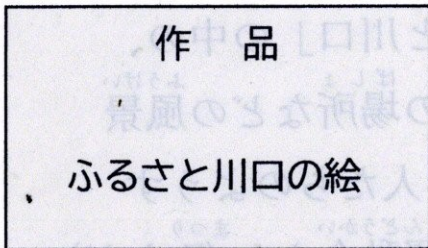 作 品
ふるさと川口の絵